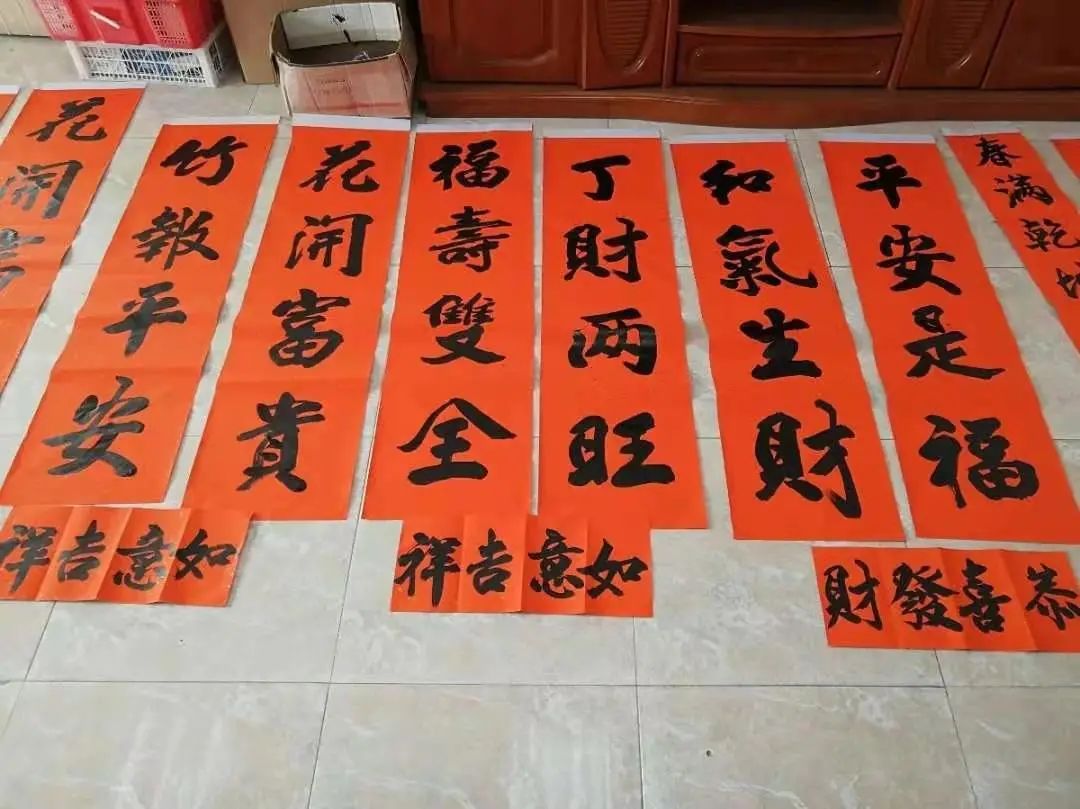 春满乾
平安是福
和氣生財
丁財两旺
福壽雙全
花開富貴
竹報平安
花開
恭喜發財
如意吉祥
如意吉祥